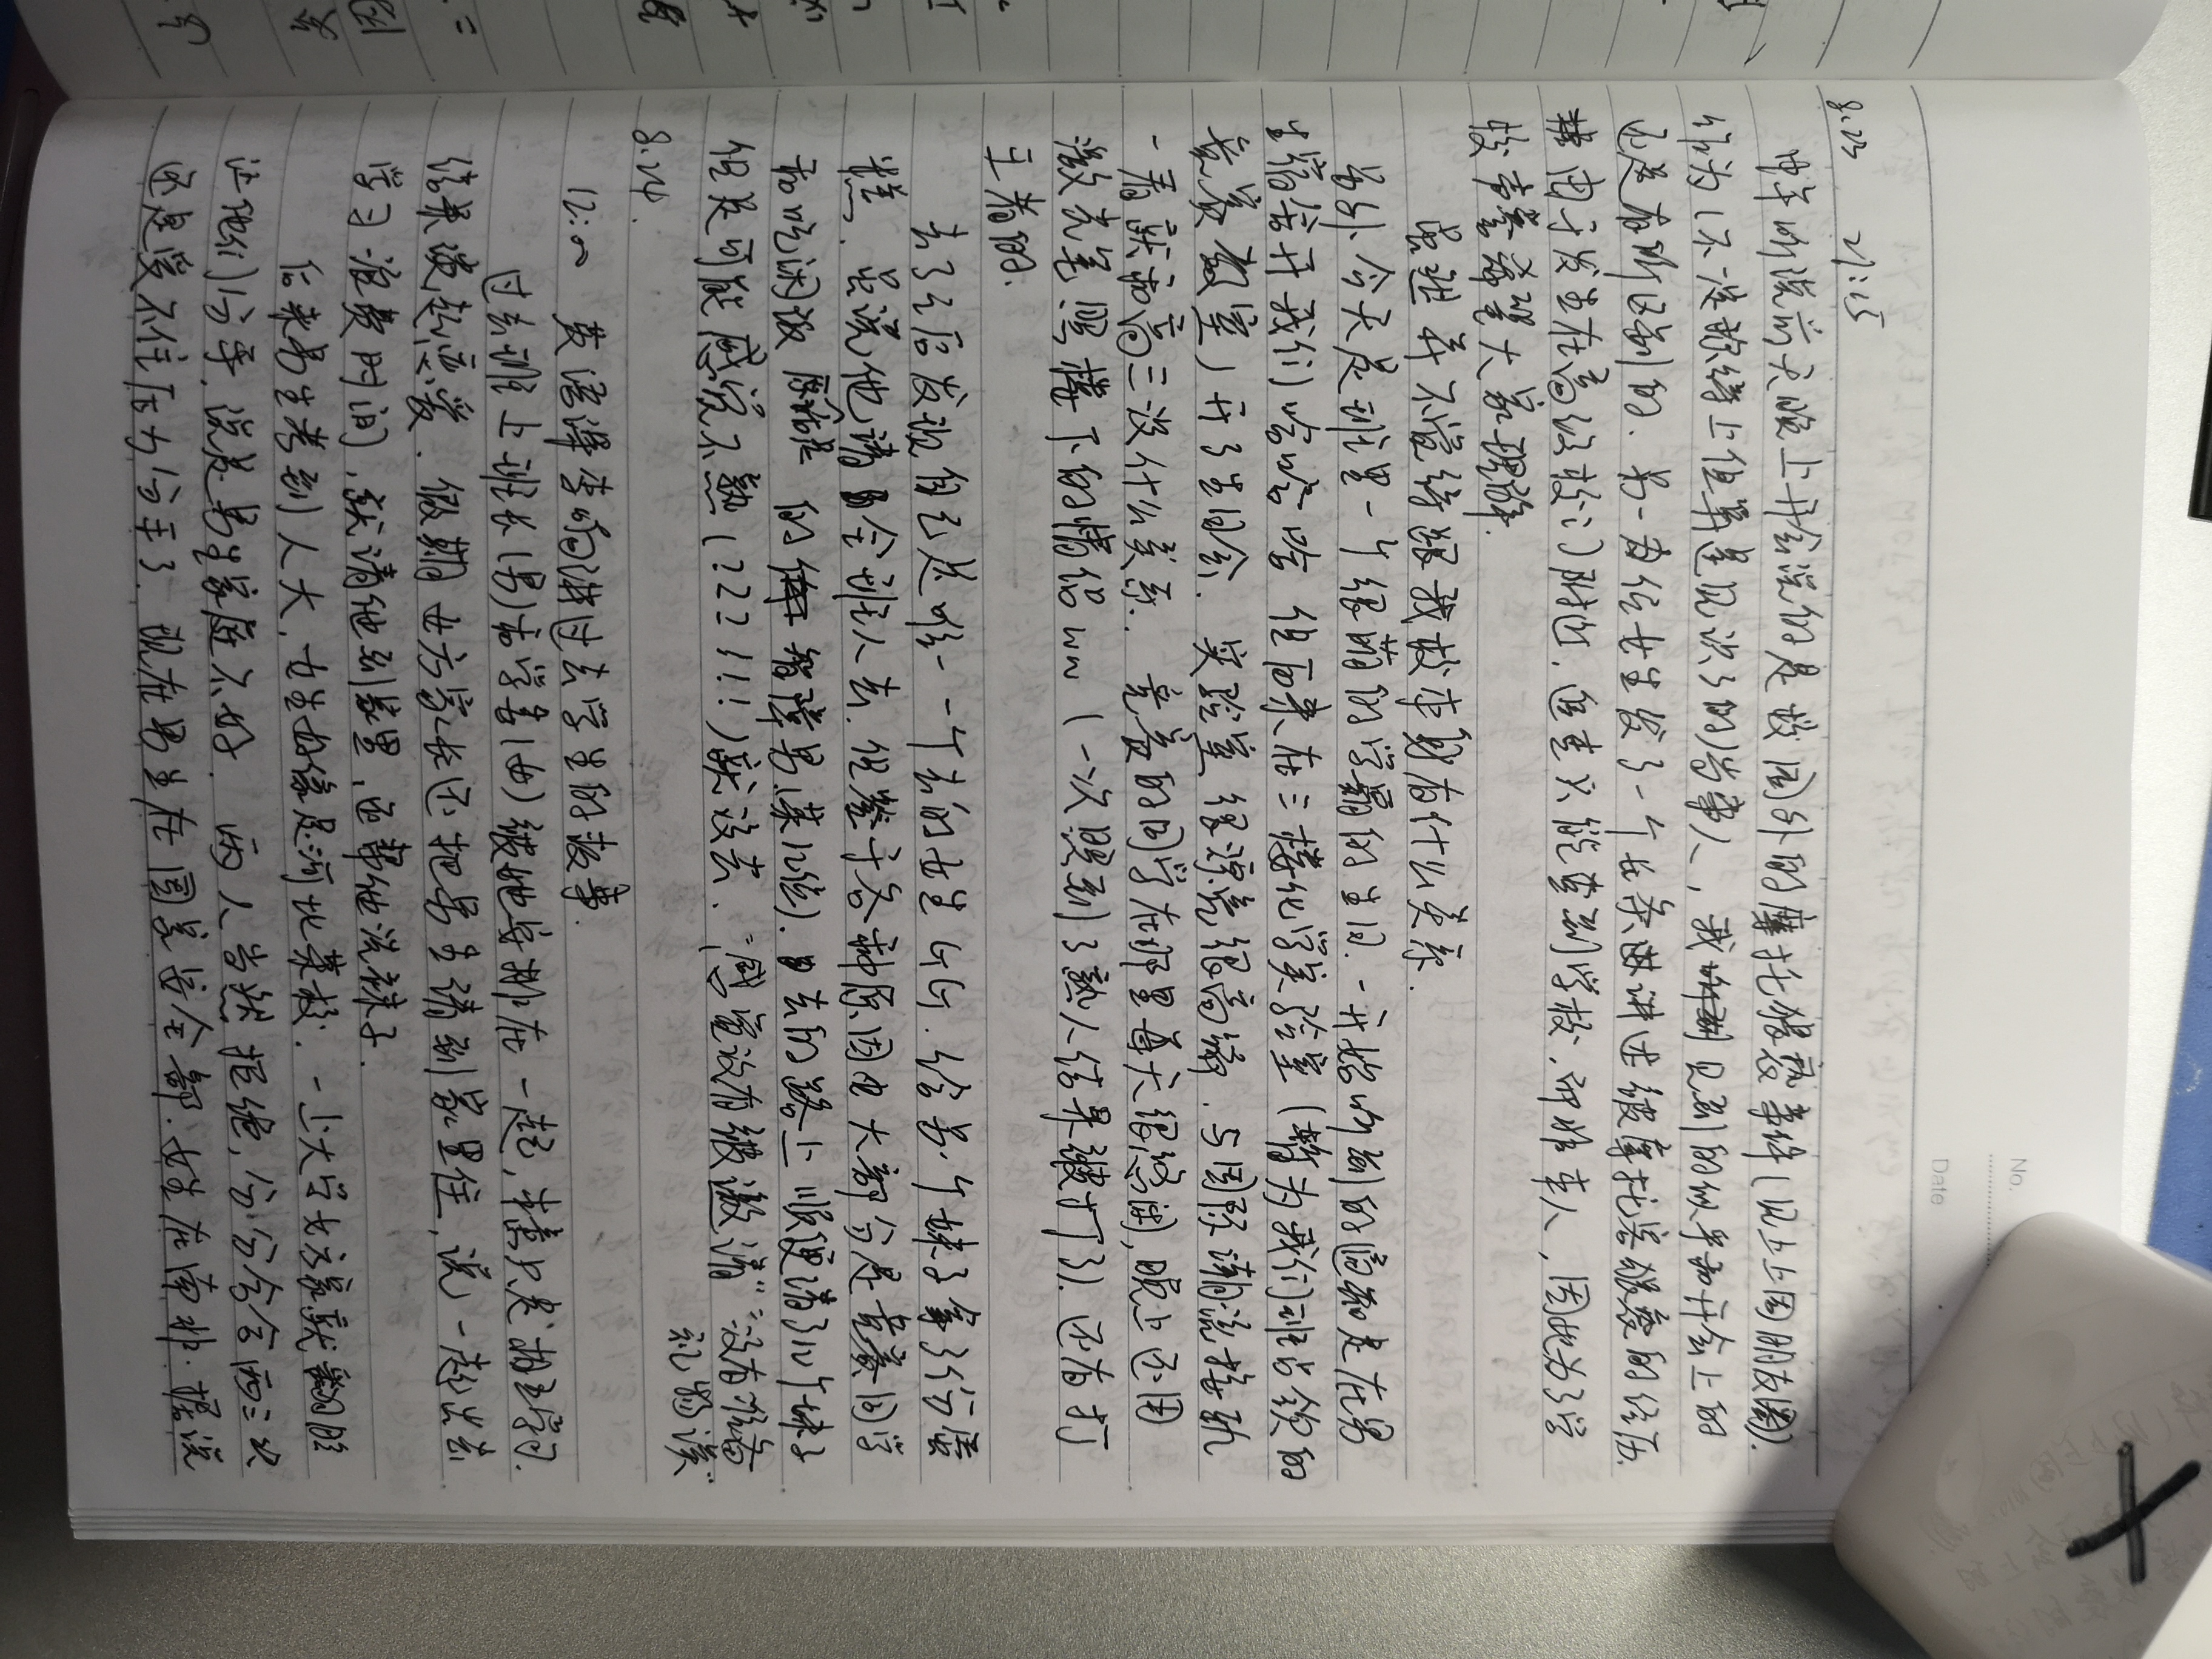 No.
Date
8.23 21:15
中午听说前天晚上开会说的是校园外的摩托猥亵事件(见上上周朋友圈).
作为(不一定称得上但算是见识了的)当事人, 我见到的似乎和开会上的
还是有所区别的. 另一位女生发了一个长条讲述被摩托客猥亵的经历.
由于发生在高级校门附近, 追查只能查到学校, 而非本人, 因此为了学
校声誉希望大家理解.
虽然并不觉得跟我校本身有什么关系.
另外今天是班里一个很萌的学霸的生日. 一开始听到的通知是在男
生宿舍开我们哈哈哈 但后来在三楼化学实验室(暂为我们班占领的
竞赛教室)开了生日会. 实验室很漂亮很高端, 与国际潮流接轨
一看就和高三没什么关系. 竞赛的同学在那里每天很悠闲, 晚上还用
激光笔照楼下的情侣ww (一次照到了熟人结果被打了). 还有打
王者的.
去了之后发现自己是唯一一个去的女生GG. 给另一个妹子拿了份蛋
糕. 虽说他请全班人去, 但鉴于各种原因大部分是竞赛同学
和吃闲饭 原话是 的智障男(某几位). 去的路上顺便请了几个妹子
但是可能感觉不熟(???!!!)就没去. "感觉没有被邀请" "没有准备
礼物诶"
8.24.
12:00 英语课李响讲过去学生的故事.
过去班上班长(男)和学委(女)被她安排在一起, 本意只是相互学习.
结果谈起恋爱. 假期女方家长还把男生请到家里住, 说一起出去
学习浪费时间, 就请他到家里, 还帮他洗袜子.
后来男生考到人大, 女生好像是河北某校. 一上大学女方家就翻脸
让他们分手, 说是男生家庭不好. 两人当然拒绝, 分分合合两三次
还是受不住压力分手了. 现在男生在国家安全部. 女生在南非. 据说